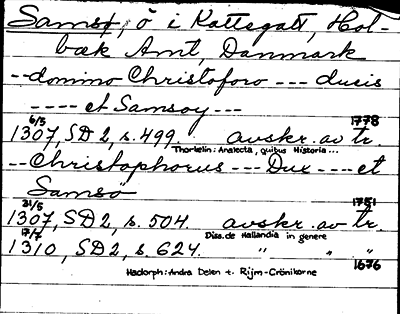 Samsø, ö i Kattegatt, Hol-
bæk Amt, Danmark
--domino Christoforo --- ducis
---- et Samsoy ---
6/5 1778
1307, SD 2, s. 499. avskr. av tr.
Thorkelin: Analecta, quibus Historia...
--Christophorus --- Dux ---- et
Samsö
31/5 1751
1307, SD 2, s. 504. avskr. av tr.
17/7 Diss. de Hallandia in genere
1310, SD 2, s. 624. " " "
1676
Hadorph: Andra Delen t. Rijm-Crönikorne